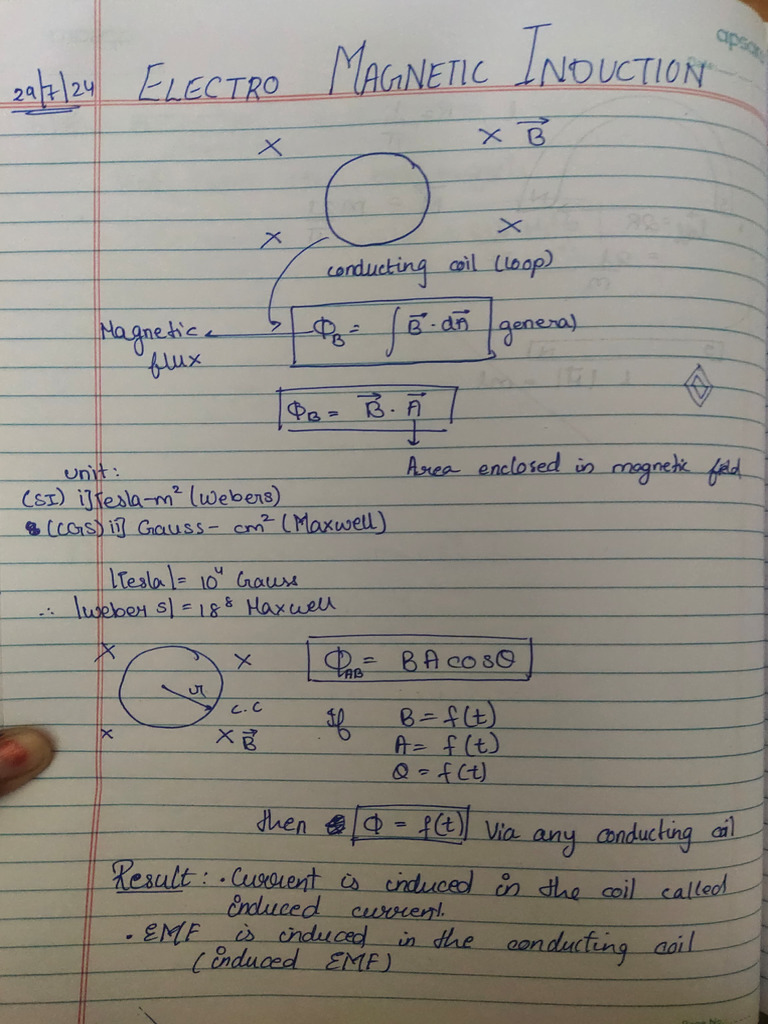 apsara
29/7/24 ELECTRO MAGNETIC INDUCTION
X X B⃗
X X
conducting coil (loop)
Magnetic flux
Φ_B = ∫ B⃗ · dA⃗ general
Φ_B = B⃗ · A⃗
Area enclosed in magnetic field
unit:
(SI) i] Tesla-m² (Webers)
(CGS) ii] Gauss - cm² (Maxwell)
|Tesla| = 10⁴ Gauss
∴ |weber s| = 18⁸ Maxwell
X X
r
c.c
X X B⃗
Φ_AB = BA cosθ
If B = f(t)
A = f(t)
θ = f(t)
then Φ = f(t) Via any conducting coil
Result : · Current is induced in the coil called
induced current.
· EMF is induced in the conducting coil
(induced EMF)